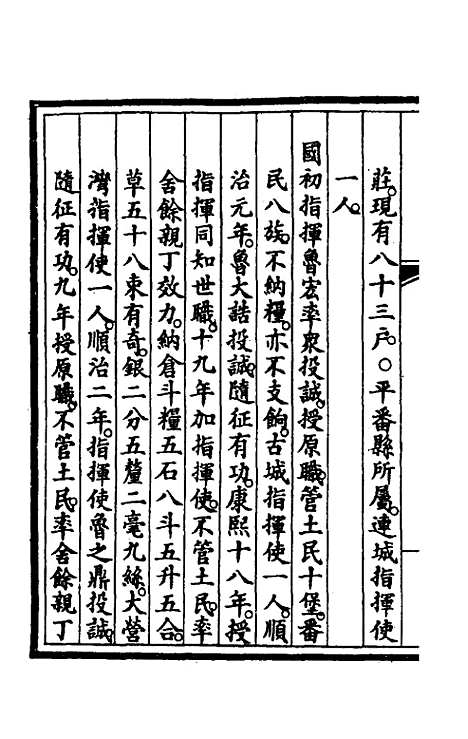 莊。現有八十三戶。○平番縣所屬。連城指揮使
一人。
國初指揮魯宏率衆投誠。授原職。管土民十堡。番
民八族。不納糧。亦不支餉。古城指揮使一人。順
治元年。魯大誥投誠。隨征有功。康熙十八年。授
指揮同知世職。十九年加指揮使。不管土民。率
舍餘親丁效力。納倉斗糧五石八斗五升五合。
草五十八束有奇。銀二分五釐二毫九絲。大營
灣指揮使一人。順治二年。指揮使魯之鼎投誠。
隨征有功。九年授原職。不管土民。率舍餘親丁